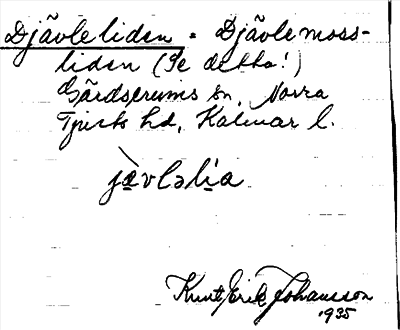 Djävleliden = Djävlemoss-
liden (Se detta!)
Gärdserums sn, Norra
Tjusts hd, Kalmar l.
jävləlia
Knut Erik Johansson
1935